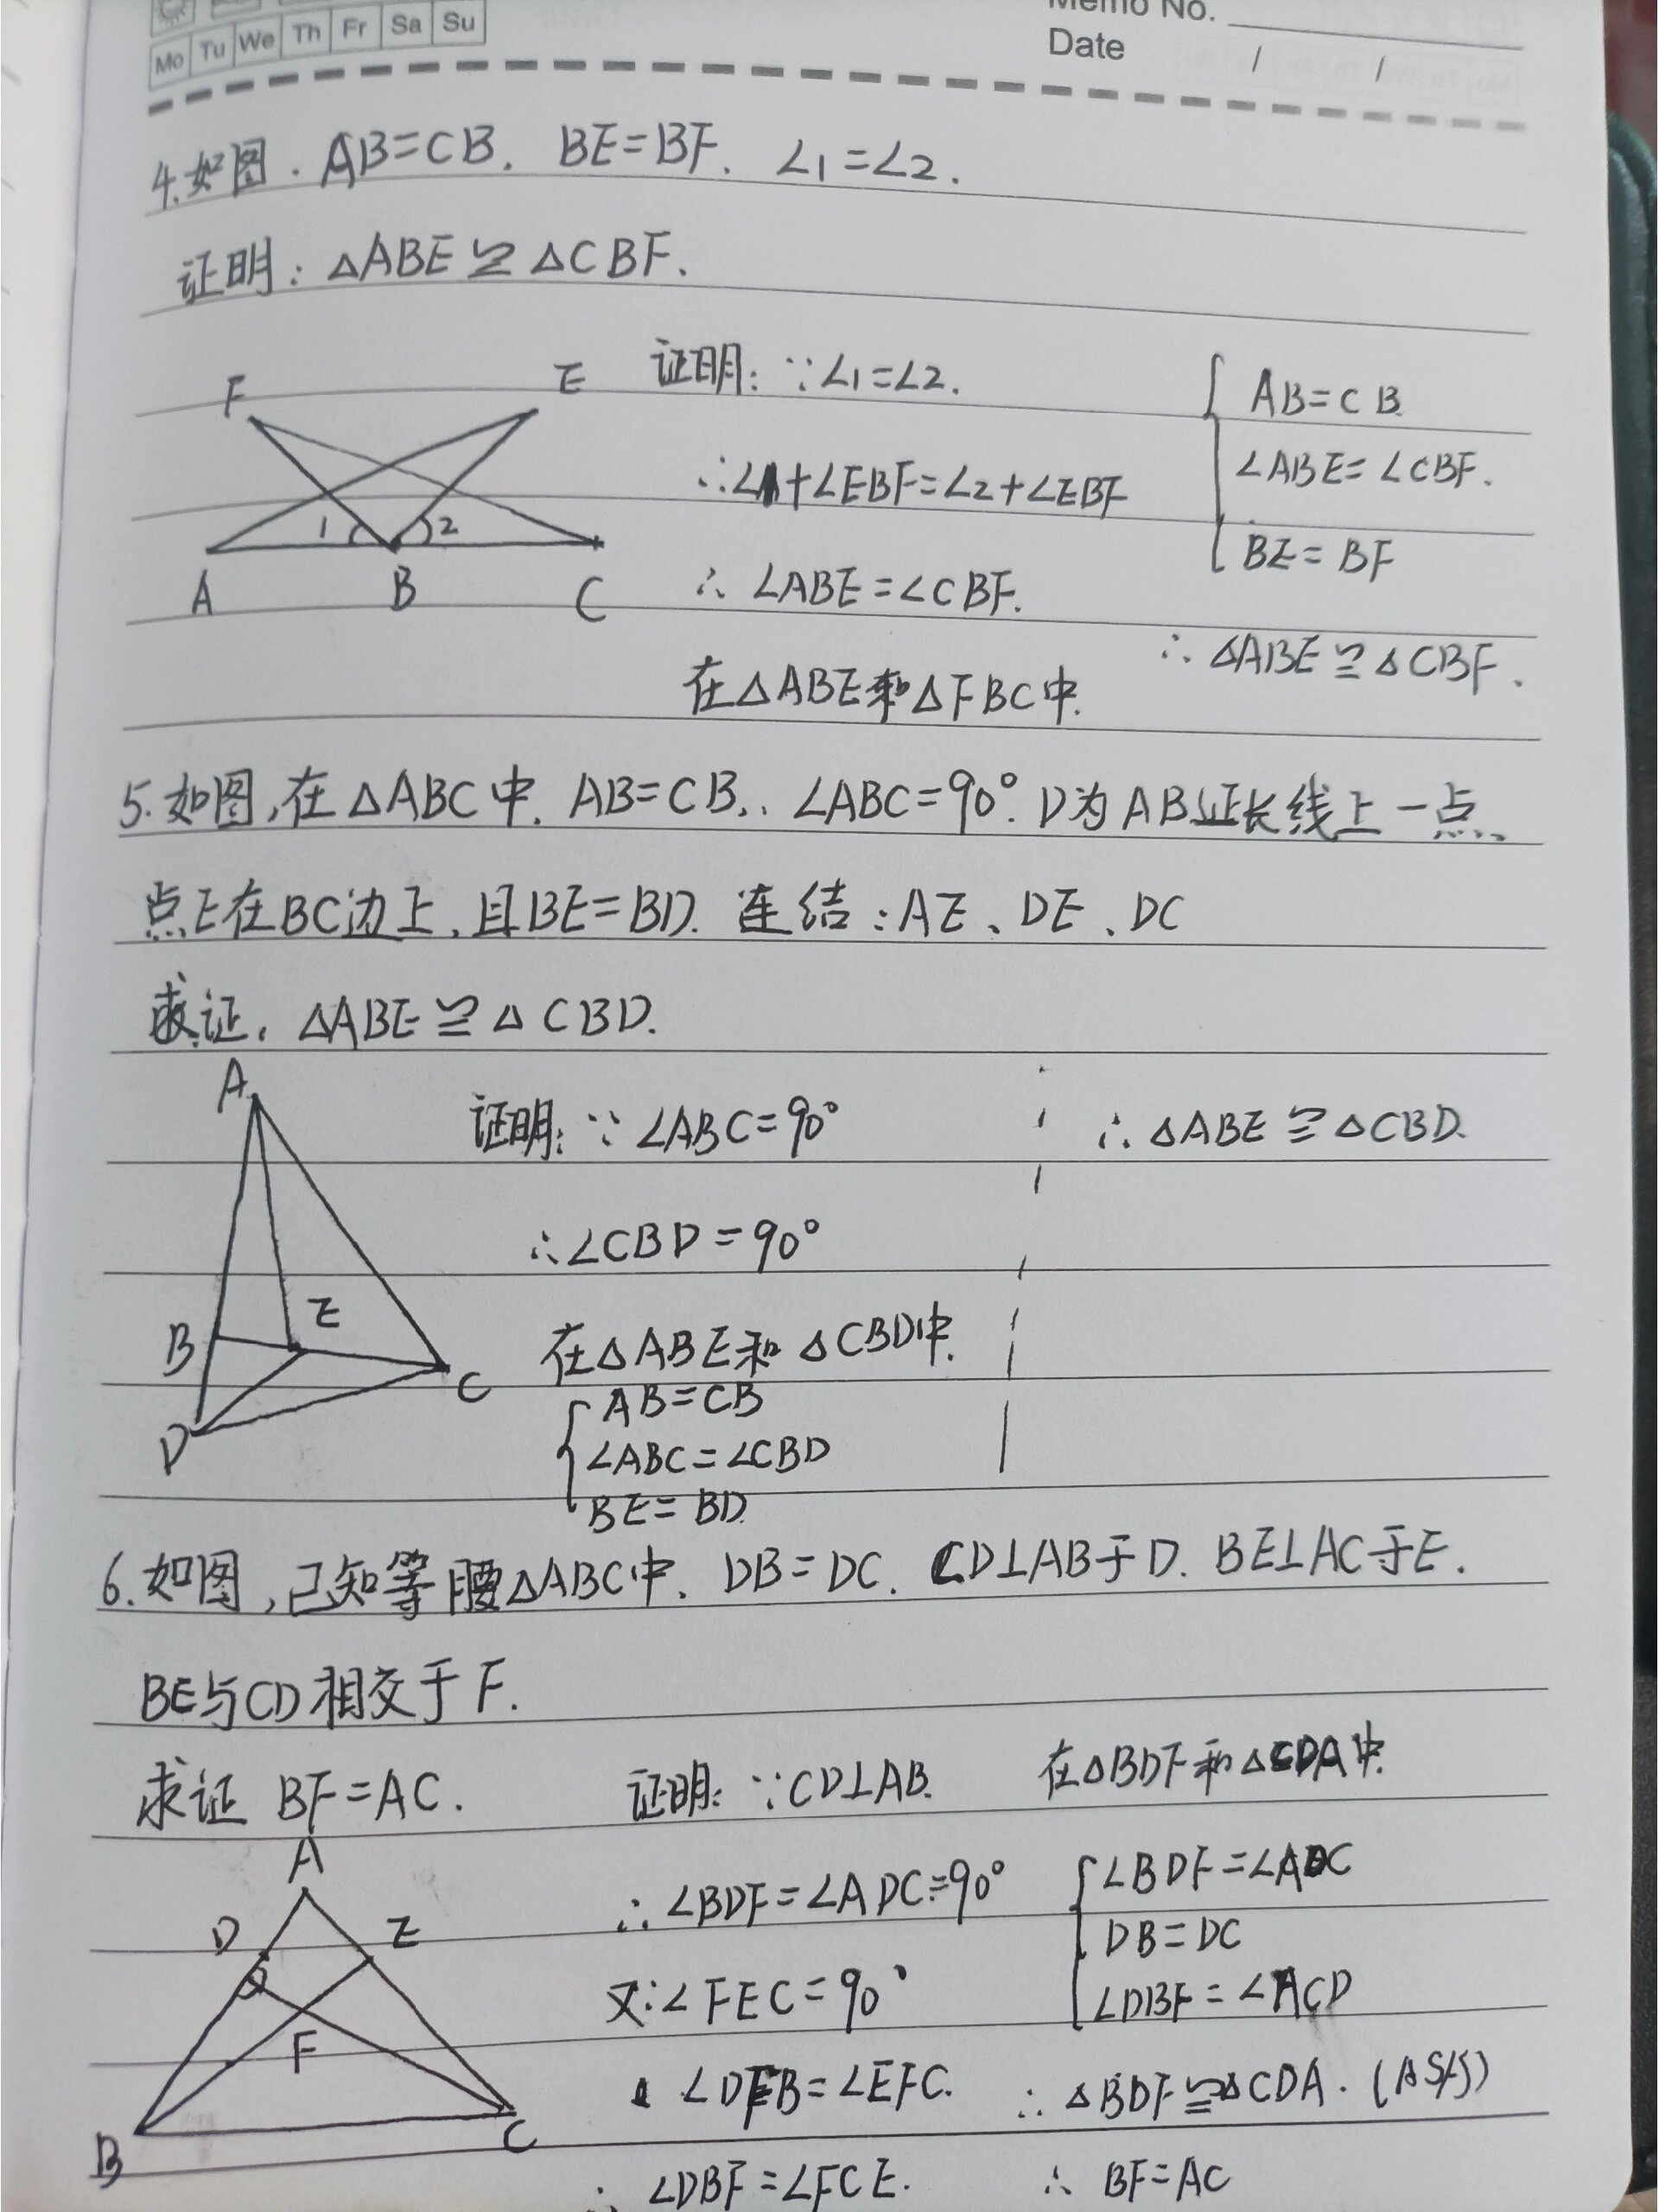 Mo Tu We Th Fr Sa Su
Memo No.
Date / /
4.如图. AB=CB. BE=BF. ∠1=∠2.
证明: △ABE≌△CBF.
F E
1 2
A B C
证明: ∵∠1=∠2.
∴∠1+∠EBF=∠2+∠EBF
∴ ∠ABE=∠CBF.
在△ABE和△FBC中.
AB=CB
∠ABE=∠CBF.
BE=BF
∴ △ABE≌△CBF.
5.如图,在△ABC中. AB=CB.. ∠ABC=90°. D为AB延长线上一点、
点E在BC边上,且BE=BD. 连结:AE、DE、DC
求证. △ABE≌△CBD.
A
B E
C
D
证明: ∵ ∠ABC=90°
∴∠CBD=90°
在△ABE和△CBD中.
AB=CB
∠ABC=∠CBD
BE=BD
∴ △ABE≌△CBD.
6.如图,已知等腰△ABC中. DB=DC. CD⊥AB于D. BE⊥AC于E.
BE与CD相交于F.
求证 BF=AC.
A
D E
F
B C
证明: ∵CD⊥AB.
∴ ∠BDF=∠ADC=90°
又∵∠FEC=90°
∠DFB=∠EFC.
∴ ∠DBF=∠FCE.
在△BDF和△CDA中.
∠BDF=∠ADC
DB=DC
∠DBF=∠ACD
∴ △BDF≌△CDA. (ASA)
∴ BF=AC